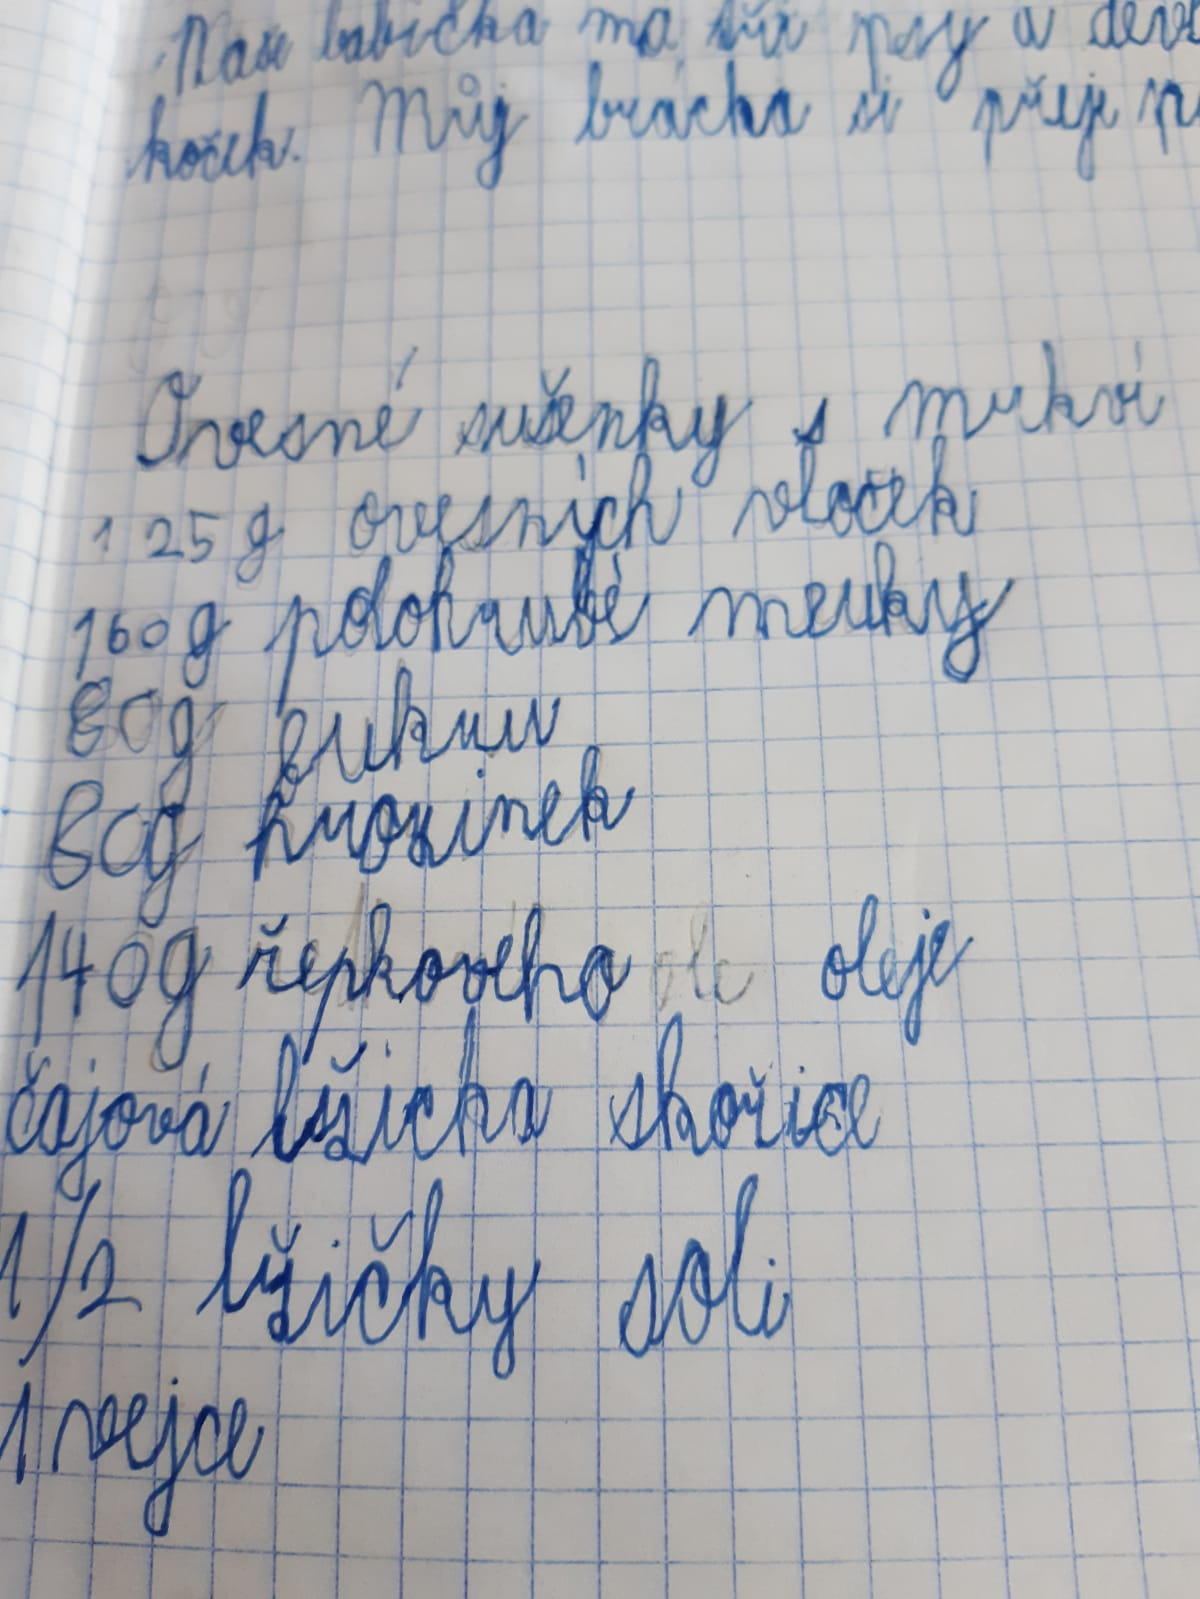 Naše babička má tři psy a devět
koček. Můj brácha si přeje
Ovesné sušenky s mrkví
125g ovesných vloček
160g polohrubé mouky
80g cukru
80g hrozinek
140g řepkového oleje
čajová lžička skořice
1/2 lžičky soli
1 vejce